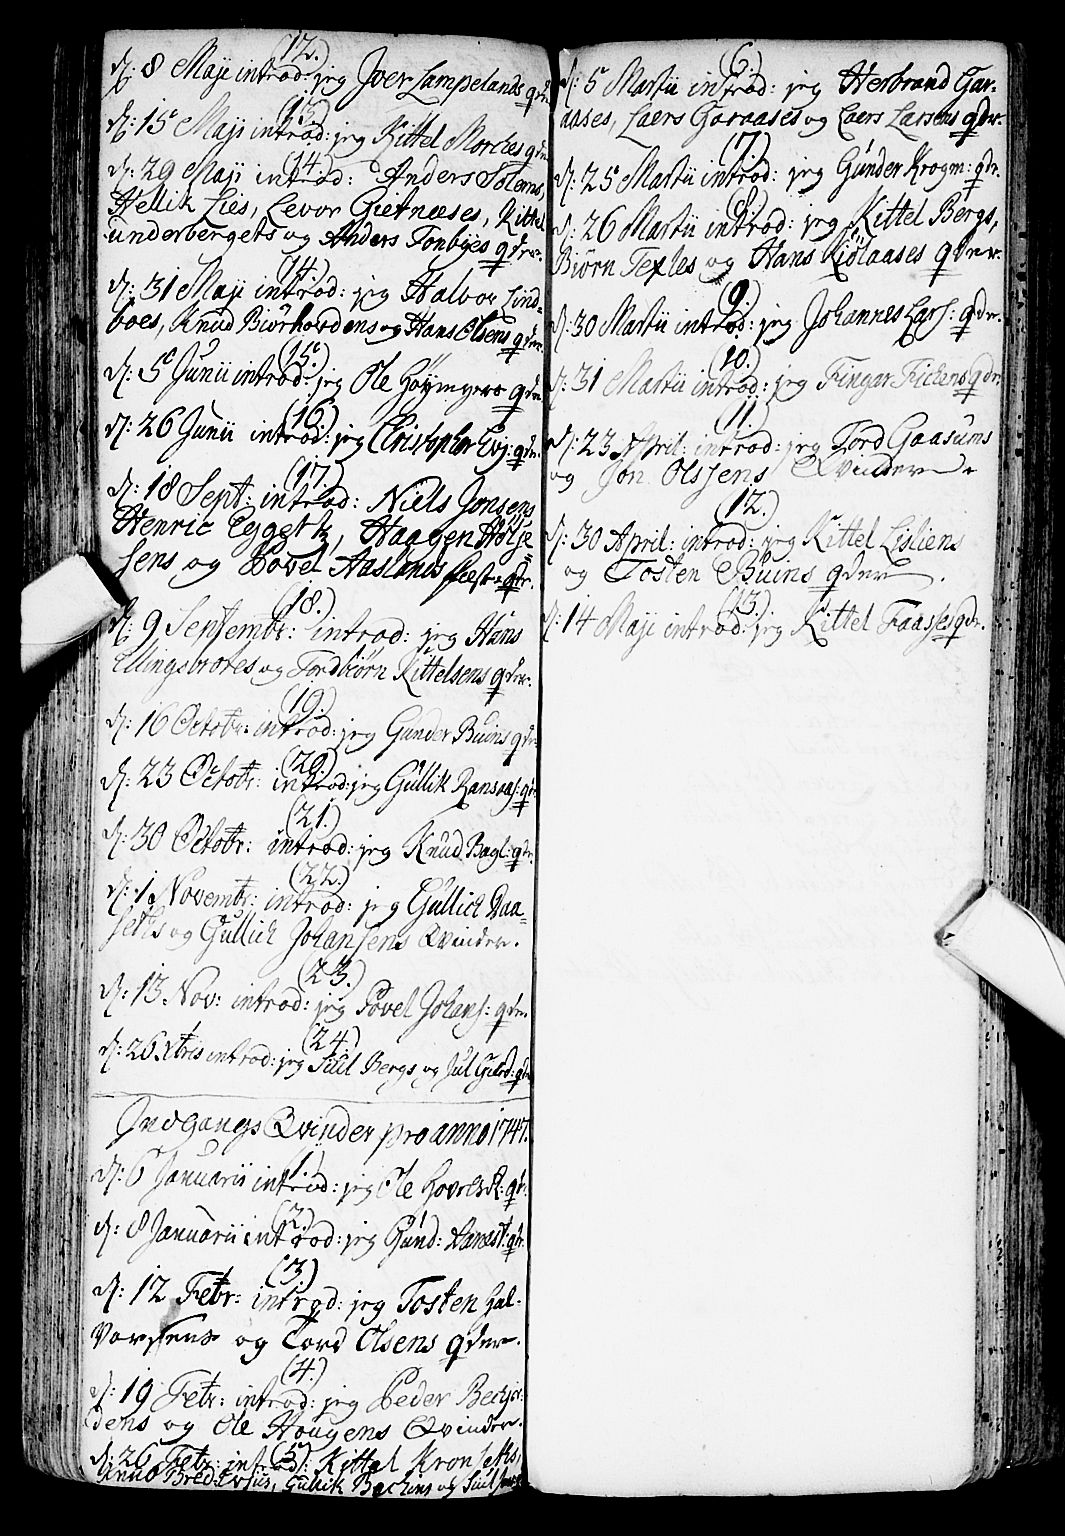 (12.)
d: 8 Maji introd: jeg Iver Lampelands qdr.
(13.)
d: 15 Maji introd: jeg Kittel Morches qdr.
(14.)
d: 29 Maji introd: Anders Solems,
Hellik Lies, Levor Gietnæses, Kittel
underbergets og Anders Fonbyes qder.
(14.)
d: 31 Maji introd: jeg Halvor Lind-
boes, Knud Biørhovdens og Hans Olsens qder.
(15.)
d: 5 Junii introd: jeg Ole Høymyers qdr.
(16.)
d: 26 Junii introd: jeg Christopher Evj: qdr.
(17.)
d: 18 Sept: introd: Niels Jonsens
Henric Eggertz, Haagen Holje-
sens og Povel Aaslands qdr.
(18.)
d: 9 Septembr: introd: jeg Hans
Ellingsbrotes og Tordbiørn Kittelsens qder.
(19.)
d: 16 Octobr: introd: jeg Gunder Buins qdr.
(20.)
d: 23 Octobr: introd: jeg Gullik Ransaas: qdr.
(21.)
d: 30 Octobr: introd: jeg Knud Bagl: qdr.
(22.)
d: 1 Novembr: introd: jeg Gullich Daa-
seths og Gullich Johansens Qvinder.
(23.)
d: 13 Nov: introd: jeg Povel Johans: qdr.
(24.)
d: 26 Xbris introd: jeg Juul Bergs og Jul Gulod: qdr
Indgangs Qvinder pro anno 1747.
(1.)
d: 6 Januarii introd: jeg Ole qdr.
(2.)
d: 8 Januarii introd: jeg Gund: qdr.
(3.)
d: 12 Febr: introd: jeg Tosten Hal-
vorssens og Tord Olsens qder.
(4.)
d: 19 Febr: introd: jeg Peder Bechjor-
dens og Ole Hougens Qvinder.
(5.)
d: 26 Febr: introd: Kittel Kronseths,
Knud Gullik Bechens og Juul
(6.)
d: 5 Martii introd: jeg Herbrand Gar-
aases, Laers Garaases og Laers Larsens qdr.
(7.)
d: 25 Martii introd: jeg Gunder Krogm: qdr.
(8.)
d: 26 Martii introd: jeg Kittel Bergs,
Biørn Texles og Hans Kidlaases qder.
(9.)
d: 30 Martii introd: jeg Johannes Lars: qdr.
(10.)
d: 31 Martii introd: jeg Fingar Fickens qdr.
(11.)
d: 23 April: introd: jeg Tord Gaasums
og Jon Olssens Qvinder.
(12.)
d: 30 April: introd: jeg Kittel Lisliens
og Tosten Buins qder.
(13.)
d: 14 Maji introd: jeg Kittel Faases qdr.